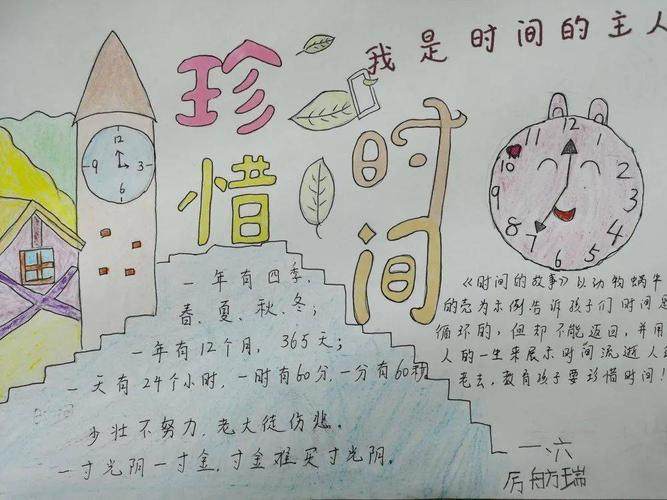 我是时间的主人
珍惜
时间
12
9 3
6
11 12 1
10 2
9 3
8 4
7 6 5
一年有四季.
春、夏、秋、冬;
一年有12个月, 365天;
一天有24个小时,一时有60分,一分有60秒
少壮不努力,老大徒伤悲.
一寸光阴一寸金,寸金难买寸光阴.
《时间的故事》以动物蜗牛
的壳为示例告诉孩子们时间是
循环的,但却不能返回,并用
人的一生来展示时间流逝人会
老去,教育孩子要珍惜时间!
一.六
厉舫瑞